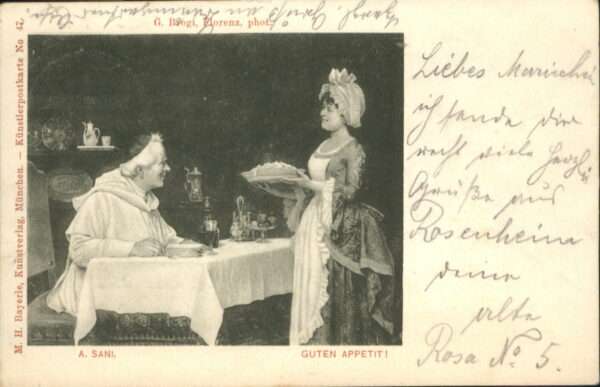 G. Brogi, Florenz, phot.
M. H. Bayerle, Kunstverlag, München. — Künstlerpostkarte No 47.
A. SANI.
GUTEN APPETIT!
Liebes
ich sende dir
recht viele herzl.
Grüße aus
Rosenheim
deine
alte
Rosa No. 5.